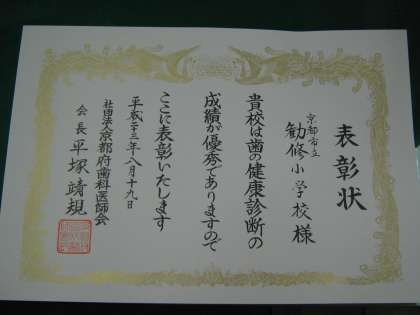 表彰状
京都市立
勧修小学校様
貴校は歯の健康診断の
成績が優秀でありますので
ここに表彰いたします
平成二十三年八月十九日
社団法人京都府歯科医師会
会長平塚靖規